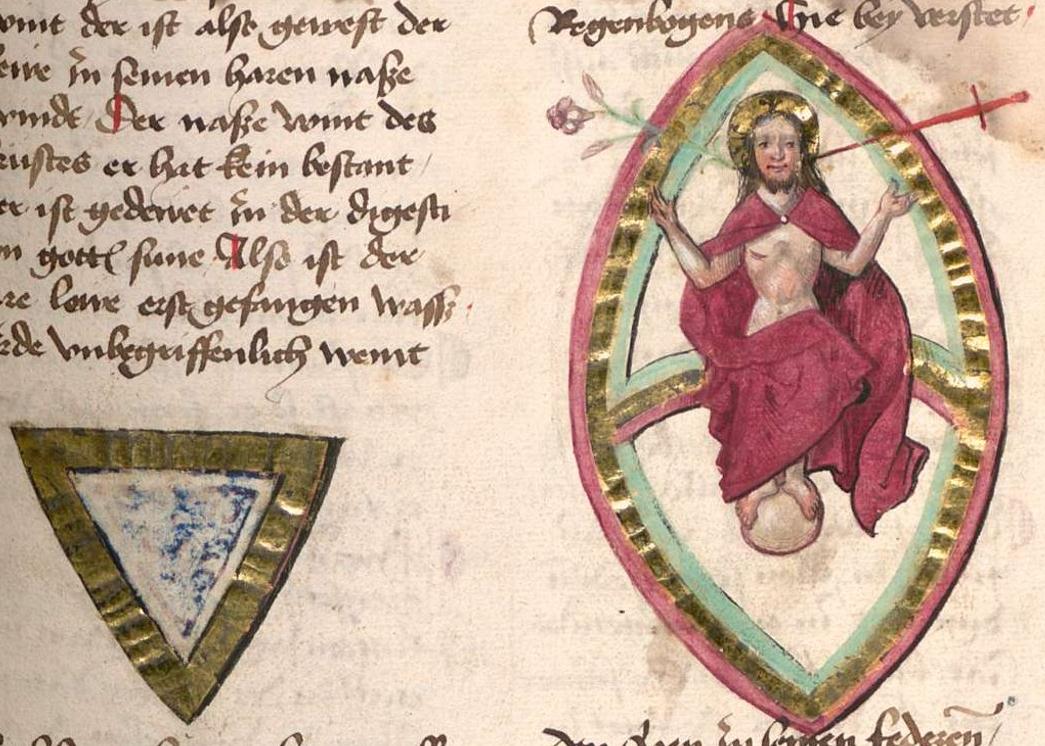 wint der ist also gewest der
lewe in seinen haren naße
windt Der naße wint des
er hat kein bestant
er ist gedewet in der digesti
gottes sune Also ist der
lewe erst gefangen wass
vnbegriffenlich wemt
Regenbogens Hie bey verstet
in seinen federen